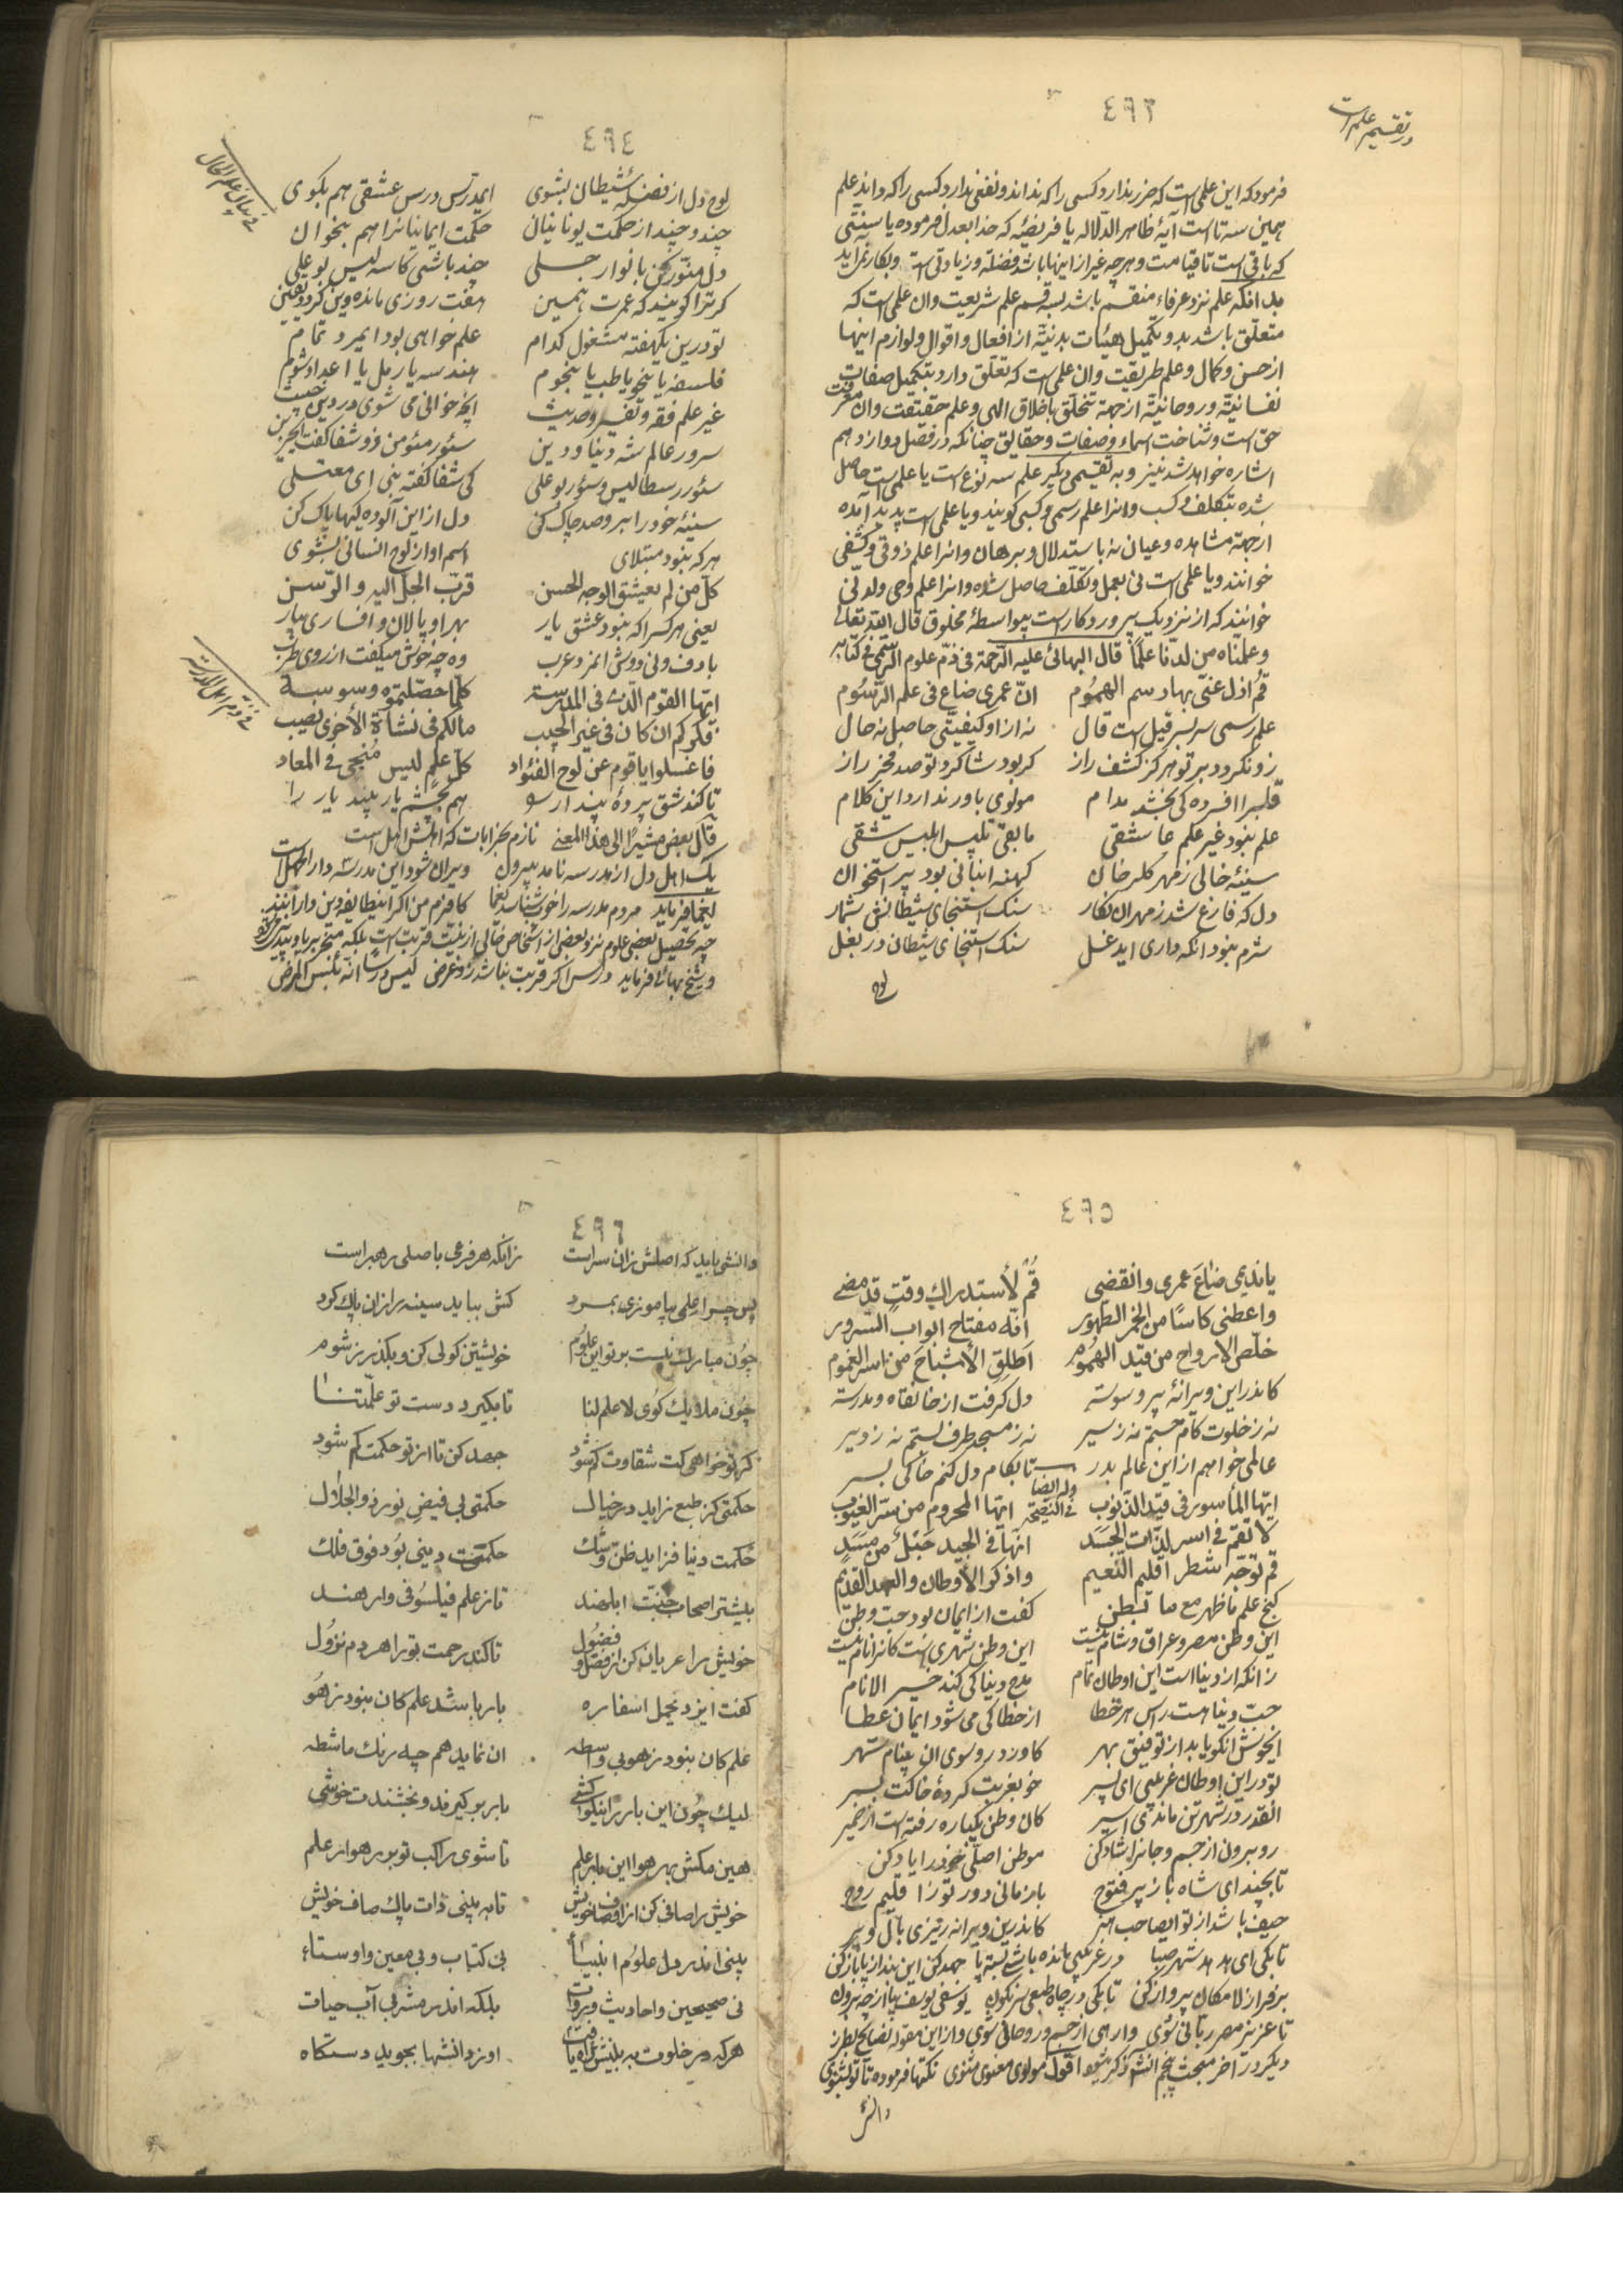 ٤٩٣
در تقسیم علم است
فرمود که این علمی است که ضرر ندارد کسی را که نداند و نفعی ندارد کسی را که داند علم
همین سه تا است آیهٔ ظاهر الدّلاله یا فریضهٔ که خدا بعدل فرموده یا سنتّی
که باقی است تا قیامت و هر چه غیر از اینها باشد فضله و زیادتی است و بکار نمی‌آید
بدانکه علم نزد عرفاء منقسم باشد بسه قسم علم شریعت وان علمی است که
متعلّق باشد بدو تکمیل هیئات بدنیّة از افعال و اقوال و لوازم اینها
از حسن و کمال و علم طریقت وان علمی است که تعلّق دارد بتکمیل صفات
نفسانیّة و روحانیّة از جهة تخلّق باخلاق الهی و علم حقیقت وان معرفت
حق است و شناخت اسماء و صفات و حقایق چنانکه در فصل دوازدهم
اشاره خواهد شد نیز و به تقسیمی دیگر علم سه نوع است یا علمی است حاصل
شده بتکلف و کسب و انرا علم رسمی و کسبی گویند و یا علمی است پدید آمده
از جهة مشاهده و عیان نه باستدلال و برهان و انرا علم ذوقی و کشفی
خوانند و یا علمی است نی بعمل و تکلّف حاصل شده و انرا علم وحی و لدنّی
خوانند که از نزدیک پروردکار است بیواسطهٔ مخلوق قال الله تعالی
وعلمّناه من لدنّا علمًا قال البهائی علیه الرّحمة فی ذمّ علوم الرّسمی فی کتابه
قُم ازل عنّی بها رسم الهمُوم انّ عمری ضاع فی علم الرّسُوم
علم رسمی سر بسر قیل است قال نه از او کیفیّتی حاصل نه حال
زو نکردد بر تو هرکز کشف راز کر بود شاکرد تو صد فخر راز
قلبرا افسرده کی بخشد مدام مولوی باور ندارد این کلام
علم نبود غیر علم عاشقی مابقی تلبیس ابلیس شقی
سینهٔ خالی ز مهر کلرخان کهنه انبانی بود پر استخوان
دل که فارغ شد ز مهر ان نکار سنک استنجای شیطانش شمار
شرم نبود انکه داری ایدغل سنک استنجای شیطان در بغل
لوح
٤٩٤
لوح دل از فضلهٔ شیطان بشوی ایمدرّس درس عشقی هم بکوی
چند و چند از حکمت یونانیان حکمت ایمانیانرا هم بخوان
دل منوّر کن بانوار جلی چند باشی کاسه لیس بو علی
کر ترا کویند که عمرت همین هفت روزی مانده وین کردد یقین
تو درین یکهفته مشغول کدام علم خواهی بود ایمرد تمام
فلسفه یا نحو یا طب یا نجوم هندسه یا رمل یا اعداد شوم
غیر علم فقه و تفسیر و حدیث
سرور عالم شه دنیا و دین سئور مئومن فرو شفا کفت
سئور رسطالیس و سئور بو علی کی شفا کفته نبی ای معتلی
سینهٔ خود را برو صد چاک کن دل از این آلوده کیها پاک کن
هر که نبود مبتلای اسم او از لوح انسانی بشوی
کلّ من لم یعشق الوجه الحسن قرّب الجلّ الیه والرّسن
یعنی هر کسرا که نبود عشق یار بهر او پالان و افساری بیار
با دف و نی دوش انمرد عرب وه چه خوش میکفت از روی طرب
ایّها القوم الّذی فی المدرسة کلّما حصّلتموه وسوسه
فکرکم ان کان فی غیر الحبیب مالکم فی نشاة الأخری نصیب
فاغسلوا یا قوم عن لوح الفئواد کلّ علمٍ لیس مُنجی فی المعاد
تا کند شق پردهٔ پندار هم بچشم یار بیند یار را
قال بعضٍ مشیرًا الی هذا المعنی نازم بخرابات که اهلش اهل است
یک اهل دل از مدرسه نامد بیرون ویران شود این مدرسه دار الجهل است
یغما فرماید مردم مدرسه را خوب شناسد یغما کافرم من اکر اینطایفه دین دارانند
و شیخ بهائی فرماید درس اکر قربت نباشد زو غرض لیس درسًا انّه بئس المرض
٤٩٥
یا ندیمی ضاعَ عمری وانقضی قُم لأستدراك وقتٍ قد مضی
واعطنی کاسًا من الخمر الطهُور انّه مفتاح ابواب السّرور
خلّص الارواح من قید الهمُوم اَطلِقِ الأشباحَ من اسر الغموم
کاندر این ویرانهٔ پر وسوسه دل کرفت از خانقاه و مدرسه
نه ز خلوت کام جستم نه ز سیر نه ز مسجد طرف بستم نه ز دیر
عالمی خواهم از این عالم بدر تا بکام دل کنم خاکی بسر
وله ایضا فی النصیحة
ایّها المأسور فی قید الذّنوب ایّها المحروم من سرّ الغیوب
لا تقم فی اسر لذّات الجسَد انّها فی الجید حَبْلٌ من مسَدٍ
قم توجّه شطر اقلیم النّعیم واذکر الأوطان والعهد القدیم
کنج علم ما ظهر مع ما بَطن کفت از ایمان بود حب وطن
این وطن مصر و عراق و شام نیست این وطن شهریست کانرا نام نیست
زانکه از دنیا است این اوطان تمام مدح دنیا کی کند خیر الانام
حبّ دنیا هست رأس هر خطا از خطا کی می شود ایمان عطا
ایخوش انکو یابد از توفیق بهر کاورد رو سوی ان بینام شهر
تو در این اوطان غریبی ای پسر خو بغربت کردهٔ خاکت بسر
انقدر در شهر تن ماندی اسیر کان وطن یکباره رفته است از ضمیر
رو برون از جسم و جانرا شاد کن موطن اصلی خود را یاد کن
تا بچند ای شاه باز پر فتوح باز مانی دور تو زا قلیم روح
حیف باشد از تو ایصاحب هنر کاندرین ویرانه ریزی بال و پر
تا بکی ای هدهد شهر صبا در غریبی مانده باشی بسته پا جهد کن این بند از پا باز کن
بر فراز لامکان پرواز کن تا بکی در چاه طبعی سرنکون یوسفی یوسف بیا از چه برون
تا عزیز مصر ربانی شوی وارهی از جسم و روحانی شوی و از این مقوله نصایح بطرز
دیکر در آخر مبحث پنجم انشا ذکر شود اقول مولوی معنوی مثنوی نکتها فرموده تا تو بشنوی
دانش
٤٩٦
دانشی باید که اصلش زان سراست زانکه هر فرعی باصلی رهبر است
پس چرا علمی بیاموزی بمرد کش بباید سینه را زان پاك کرد
چون مبارك نیست بر تو این علُوم خویشتن کولی کن و بکذر ز شوم
چون ملایك کوی لا علم لنا تا بکیرد دست تو علّمتنا
کر تو خواهی کت شقاوت کم شود جهد کن تا از تو حکمت کم شود
حکمتی کز طبع زاید در خیال حکمتی بی فیض نور ذو الجلال
حکمت دنیا فزاید ظنّ و شك حکمت دینی بُود فوق فلك
بیشتر اصحاب جنّت ابلهند تا ز علم فیلسُوفی وارهند
خویش را عریان کن از فضل و فضُول تا کند رحمت بتو را هر دم نزوُل
کفت ایزد یحمل اسفاره بار باشد علم کان نبود ز هُو
علم کان نبود ز هو بی واسطه ان نماید هم چه رنك ماشطه
لیك چون این بار را نیکو کشی بار بر کیرند و بخشندت خوشی
هین مکش بهر هوا این بار علم تا شوی راکب تو بر رهوار علم
خویش را صافی کن از اوصاف خویش تا به بینی ذات پاك صاف خویش
بینی اندر دل علوُم انبیا بی کتاب و بی معین و اوستاء
نی صحیحین و احادیث و رواة بلکه اندر مشرب آب حیات
هر که در خلوت به بینش یافت راه او ز دانشها بجوید دستکاه